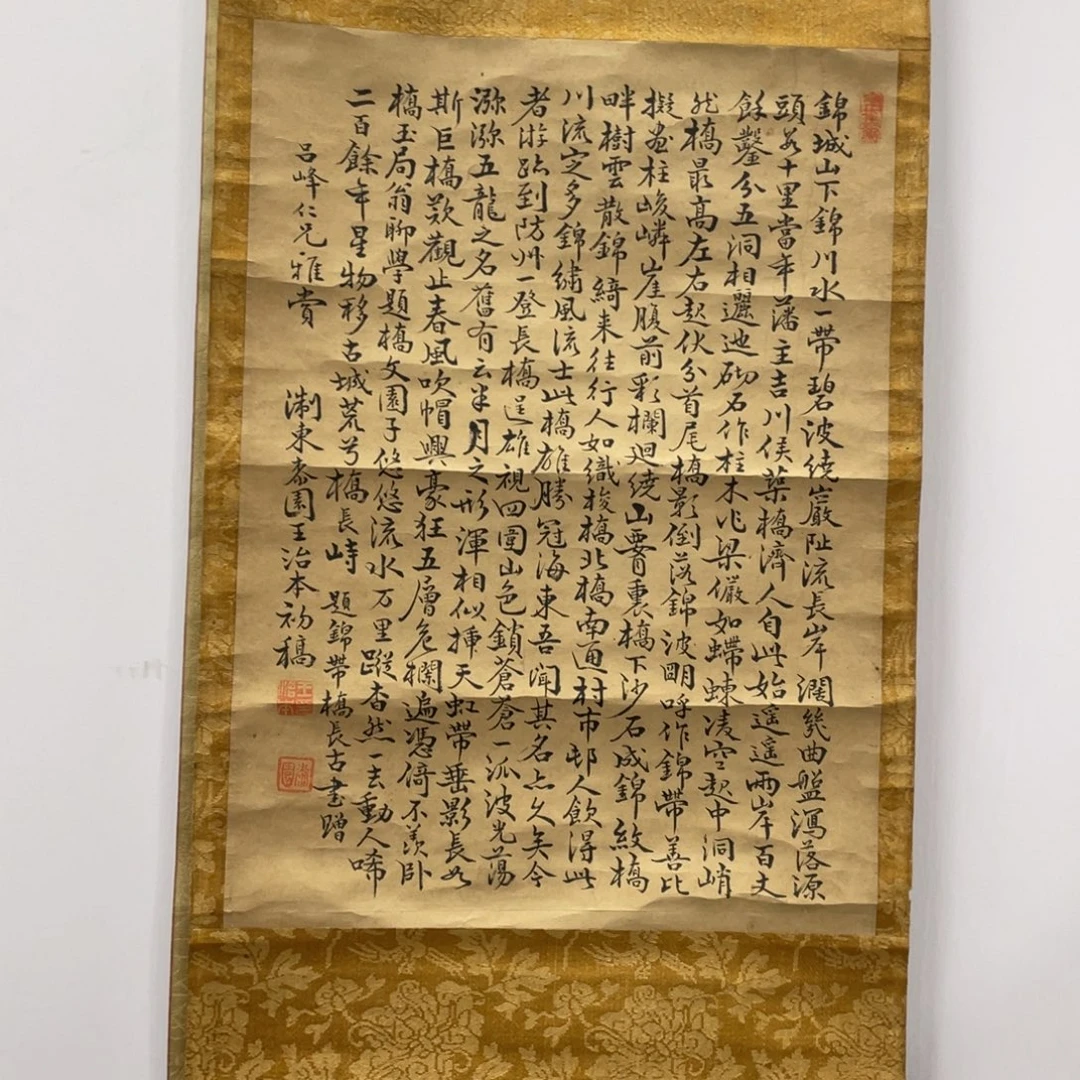 錦城山下錦川水一帶碧波繞巖阯流長岸濶幾曲盤瀉落源
頭五十里當年藩主吉川侯築橋濟人自此始遥遥兩岸百丈
餘鑿分五洞相邐迤砌石作柱木作梁儼如螮蝀凌空起中洞峭
然橋最高左右起伏分首尾橋影倒落錦波明呼作錦帶善比
擬柱峻嶙崖腹前彩欄迴繞山要裏橋下沙石成錦紋橋
畔樹雲散錦綺来往行人如織梭橋北橋南通村市邨人飲得此
川流定多錦繡風流士此橋雄勝冠海東吾聞其名亦久矣今
者游跡到防州一登長橋逞雄視四圍山色鎖蒼蒼一派波光蕩
㳽㳽五龍之名舊有云半月之形渾相似揷天虹帶垂影長如
斯巨橋歎觀止春風吹帽興豪狂五層危欄遍憑倚不羨卧
橋玉局翁聊學題橋文園子悠悠流水万里蹤杳然一去動人唏
二百餘年星物移古城荒兮橋長峙 題錦帶橋長古書贈
呂峰仁兄雅賞
淛東桼園王治本初稿